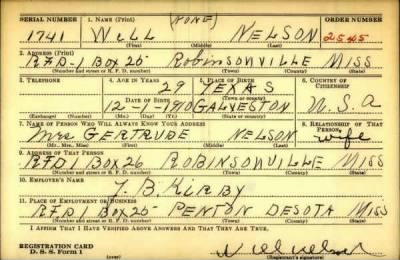 SERIAL NUMBER 1. NAME (Print) (NONE) ORDER NUMBER
1741 WILL NELSON 2545
(First) (Middle) (Last)
2. ADDRESS (Print)
RFD-1 BOX 25 ROBINSONVILLE MISS
(Number and street or R. F. D. number) (Town) (County) (State)
3. TELEPHONE 4. AGE IN YEARS 5. PLACE OF BIRTH 6. COUNTRY OF CITIZENSHIP
29 TEXAS
DATE OF BIRTH (Town or county)
12-1-1910 GALVESTON U.S.A
(Exchange) (Number) (Mo.) (Day) (Yr.) (State or country)
7. NAME OF PERSON WHO WILL ALWAYS KNOW YOUR ADDRESS 8. RELATIONSHIP OF THAT PERSON
Mrs GERTRUDE NELSON wife
(Mr., Mrs., Miss) (First) (Middle) (Last)
9. ADDRESS OF THAT PERSON
RFD1 BOX 26 ROBINSONVILLE MISS
(Number and street or R. F. D. number) (Town) (County) (State)
10. EMPLOYER'S NAME
J. B KIRBY
11. PLACE OF EMPLOYMENT OR BUSINESS
RFD1 BOX 25 PENTON DESOTA MISS
(Number and street or R. F. D. number) (Town) (County) (State)
I AFFIRM THAT I HAVE VERIFIED ABOVE ANSWERS AND THAT THEY ARE TRUE.
REGISTRATION CARD
D. S. S. Form 1
(Registrant's signature)